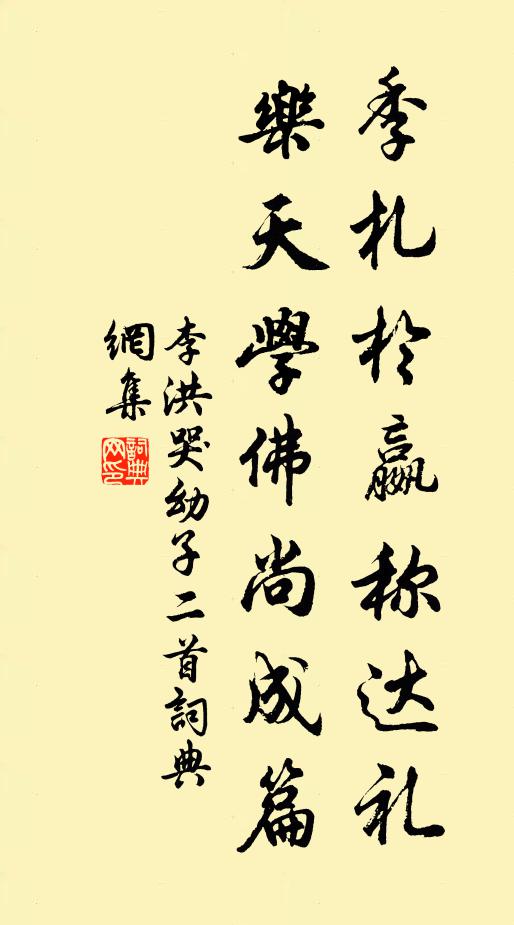 季札於嬴称达礼
樂天學佛尚成篇
李洪哭幼子二首詞典
網集
詞典网印